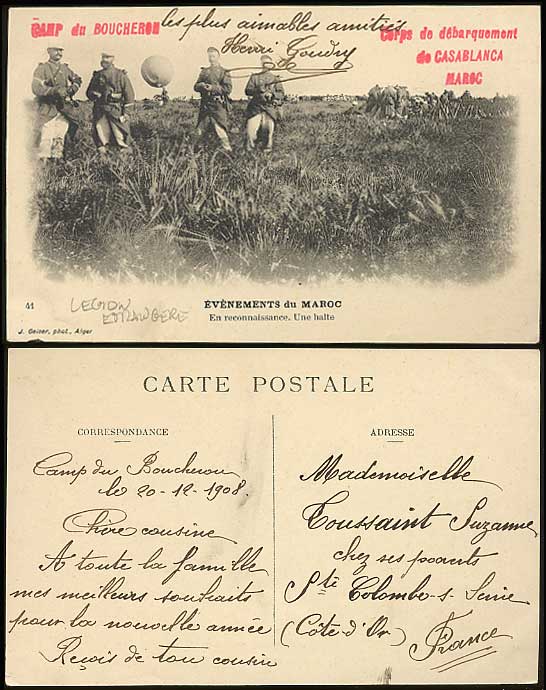 CAMP du BOUCHERON
les plus aimables amitiés
Henri Goudry
Corps de débarquement
de CASABLANCA
MAROC
41
LEGION
ETRANGERE
ÉVÉNEMENTS du MAROC
En reconnaissance. Une halte
J. Geiser, phot., Alger
CARTE POSTALE
CORRESPONDANCE
Camp du Boucheron
le 20-12-1908.
Chère cousine
A toute la famille
mes meilleurs souhaits
pour la nouvelle année
Reçois de ton cousin
ADRESSE
Mademoiselle
Toussaint Suzanne
chez ses parents
Ste Colombe-s-Seine
(Côte-d'Or)
France